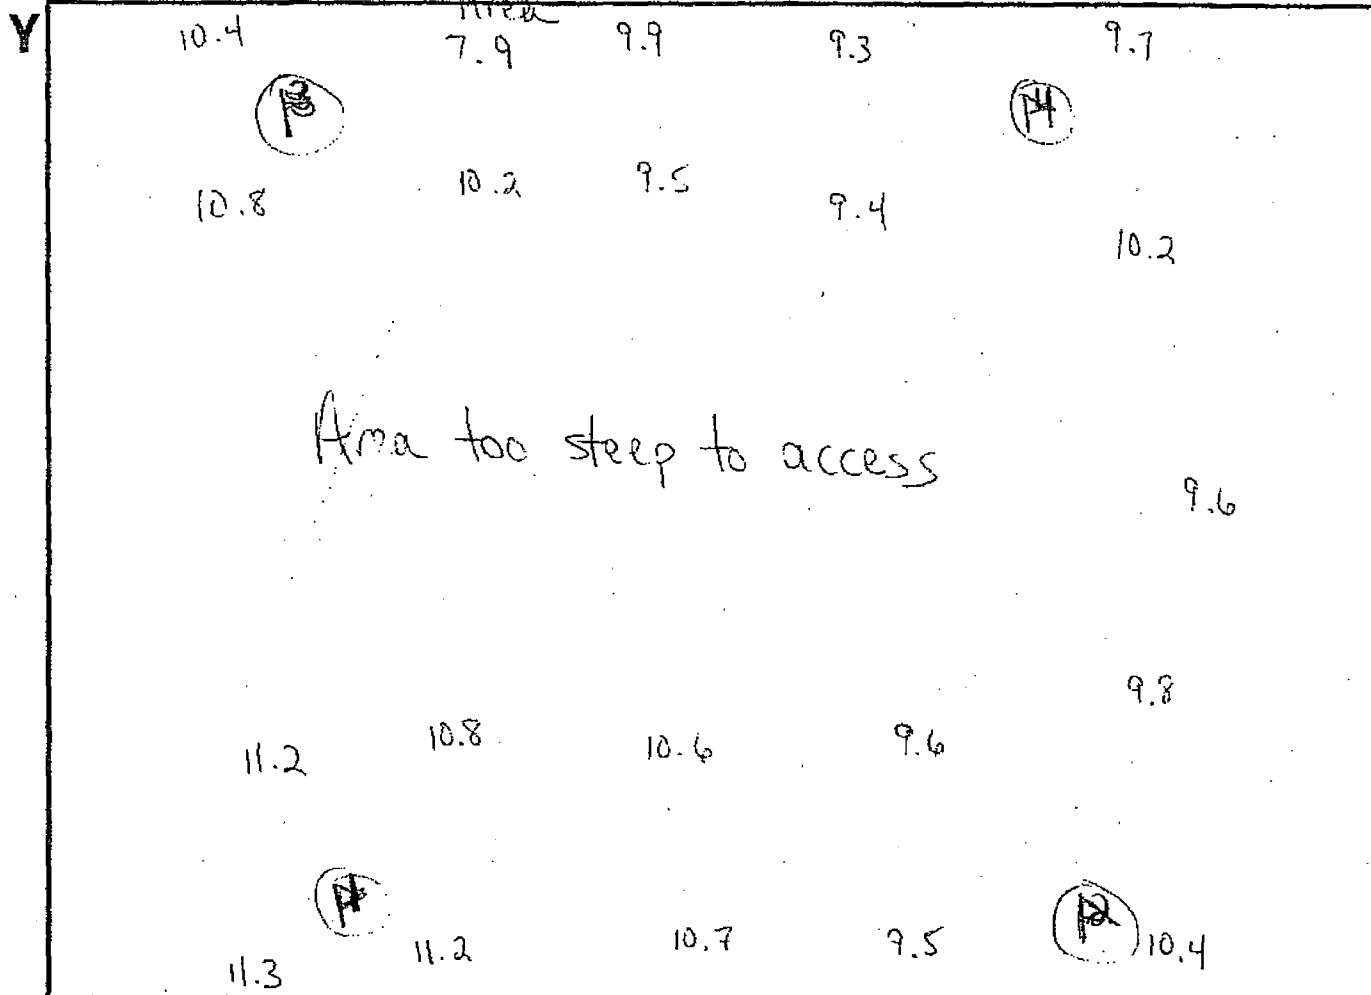 Y
Area
10.4 7.9 9.9 9.3 9.7
10.8 10.2 9.5 9.4 10.2
Area too steep to access
9.6
11.2 10.8 10.6 9.6 9.8
11.3 11.2 10.7 9.5 10.4